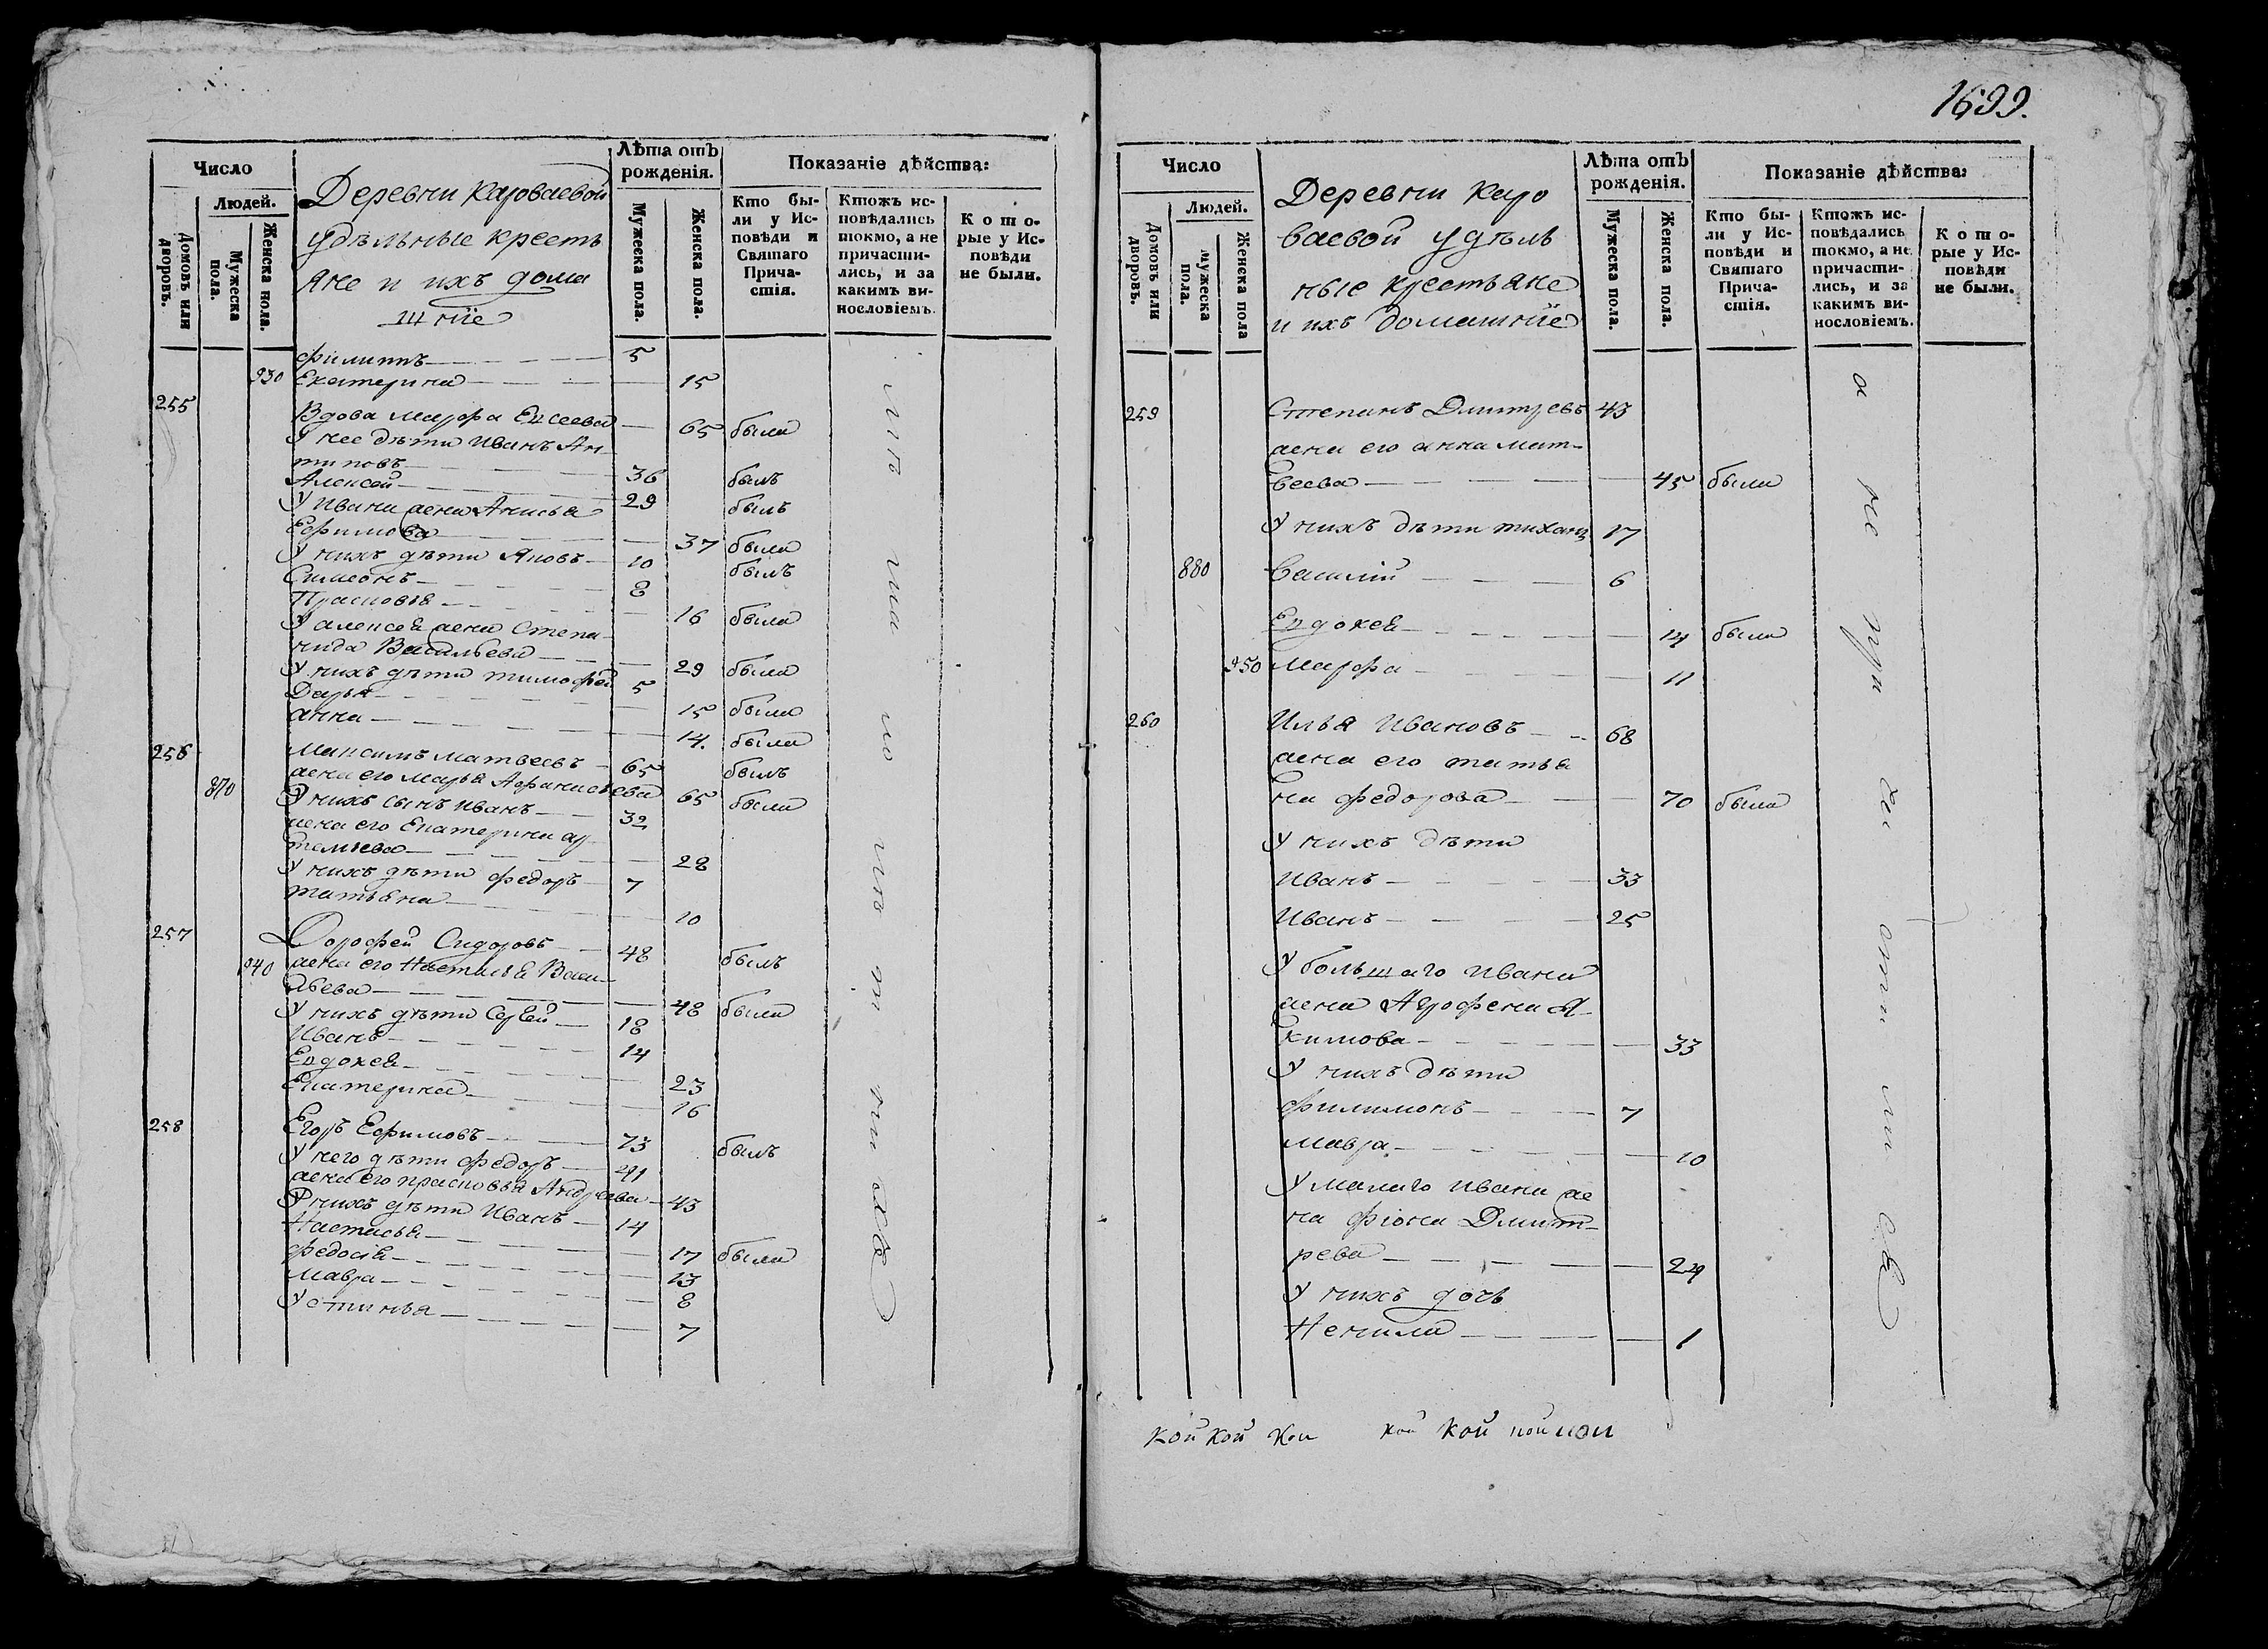 1699.
Число
Людей.
Домовъ или дворовъ.
Мужеска пола.
Женска пола.
Деревни Кароваевой
удѣльные кресть
яне и ихъ дома
шніе
Лѣта отъ рожденія.
Мужеска пола.
Женска пола.
Показаніе дѣйства:
Кто бы-
ли у Ис-
повѣди и
Святаго
Прича-
стія.
Ктожъ ис-
повѣдались
токмо, а не
причасти-
лись, и за
какимъ ви-
нословіемъ.
Кото-
рые у Ис-
повѣди
не были.
Филиппъ 5
930 Екатерина 15
255 Вдова Марфа Евсеева 65 была
У нее дѣти Иванъ Ан
типовъ 36 былъ
Алексей 29 былъ
У Ивана жена Анисья
Ефимова 37 была
У нихъ дѣти Яковъ 10 былъ
Симеонъ 8
Прасковья 16 была
У алексея жена Степа
нида Васильева 29 была
У нихъ дѣти тимофей 5
Дарья 15 была
анна 14. была
256 Максимъ Матвеевъ 65 былъ
жена его Марья Афанисьева 65 была
870 У нихъ сынъ Иванъ 32
жена его Екатерина ар
темьева 28
У нихъ дѣти федоръ 7
татьяна 10
257 Дорофей Сидоровъ 48 былъ
940 жена его Настасья Васи
льева 48 была
У нихъ дѣти Сергей 18
Иванъ 14
Евдокея 23
Екатерина 16
258 Егоръ Ефимовъ 73 былъ
У него дѣти федоръ 41
жена его прасковья Андреева 43
У нихъ дѣти Иванъ 14
Настасья 17 была
федосія 13
Мавра 8
Устинья 7
Число
Людей.
Домовъ или дворовъ.
Мужеска пола.
Женска пола
Деревни Каро
ваевой удѣль
ные крестьяне
и ихъ домашніе
Лѣта отъ рожденія.
Мужеска пола.
Женска пола.
Показаніе дѣйства:
Кто бы-
ли у Ис-
повѣди и
Святаго
Прича-
стія.
Ктожъ ис-
повѣдались
токмо, а не
причасти-
лись, и за
какимъ ви-
нословіемъ.
Кото-
рые у Ис-
повѣди
не были.
259 Степанъ Дмитревъ 43
жена его анна мат-
веева 45 была
У нихъ дѣти тиханъ 17
880 Василій 6
Евдокея 14 была
950 Марфа 11
260 Илья Ивановъ 68
жена его татья
на федорова 70 была
У нихъ дѣти
Иванъ 33
Иванъ 25
У большаго Ивана
жена Агрофена Я-
кимова 33
У нихъ дѣти
филимонъ 7
Мавра 10
У малаго Ивана же
на фіона Дмит-
рева 24
У нихъ дочь
Ненила 1
кой кой кои кои кой кой кои